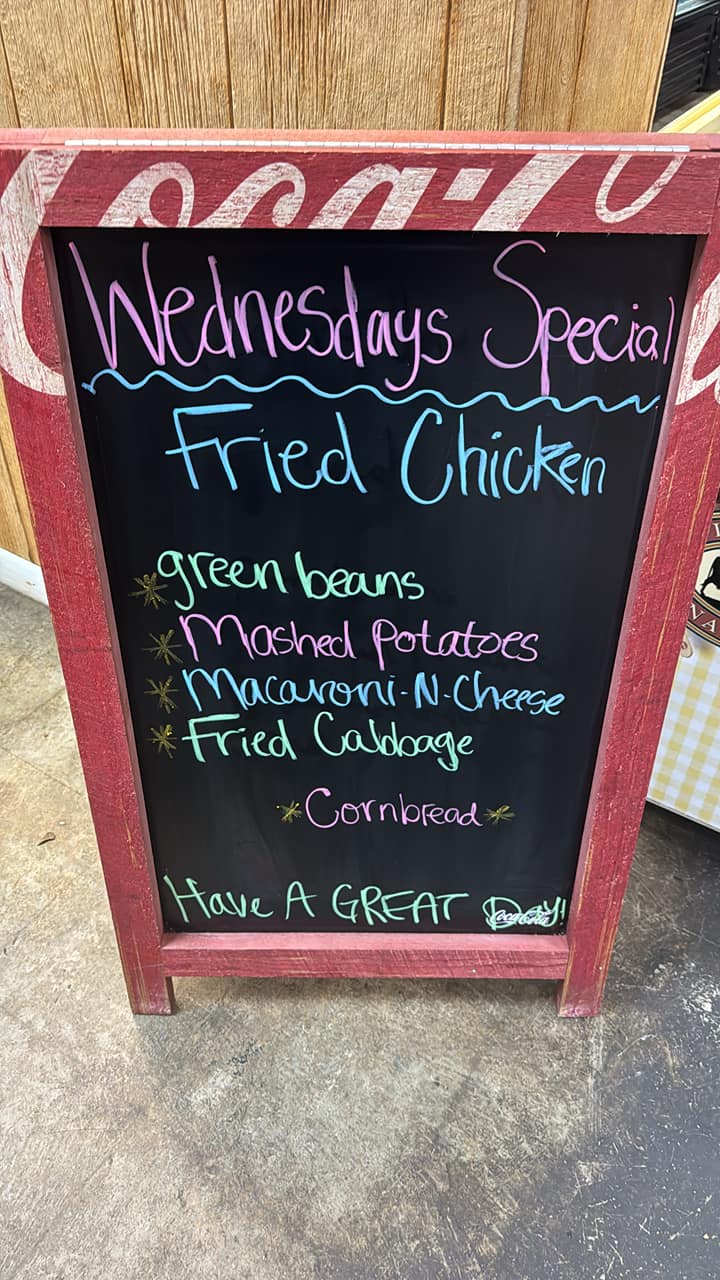 Coca-Co
Wednesdays Special
Fried Chicken
green beans
Mashed Potatoes
Macaroni-N-Cheese
Fried Cabbage
Cornbread
Have A GREAT Day!
Coca-Cola